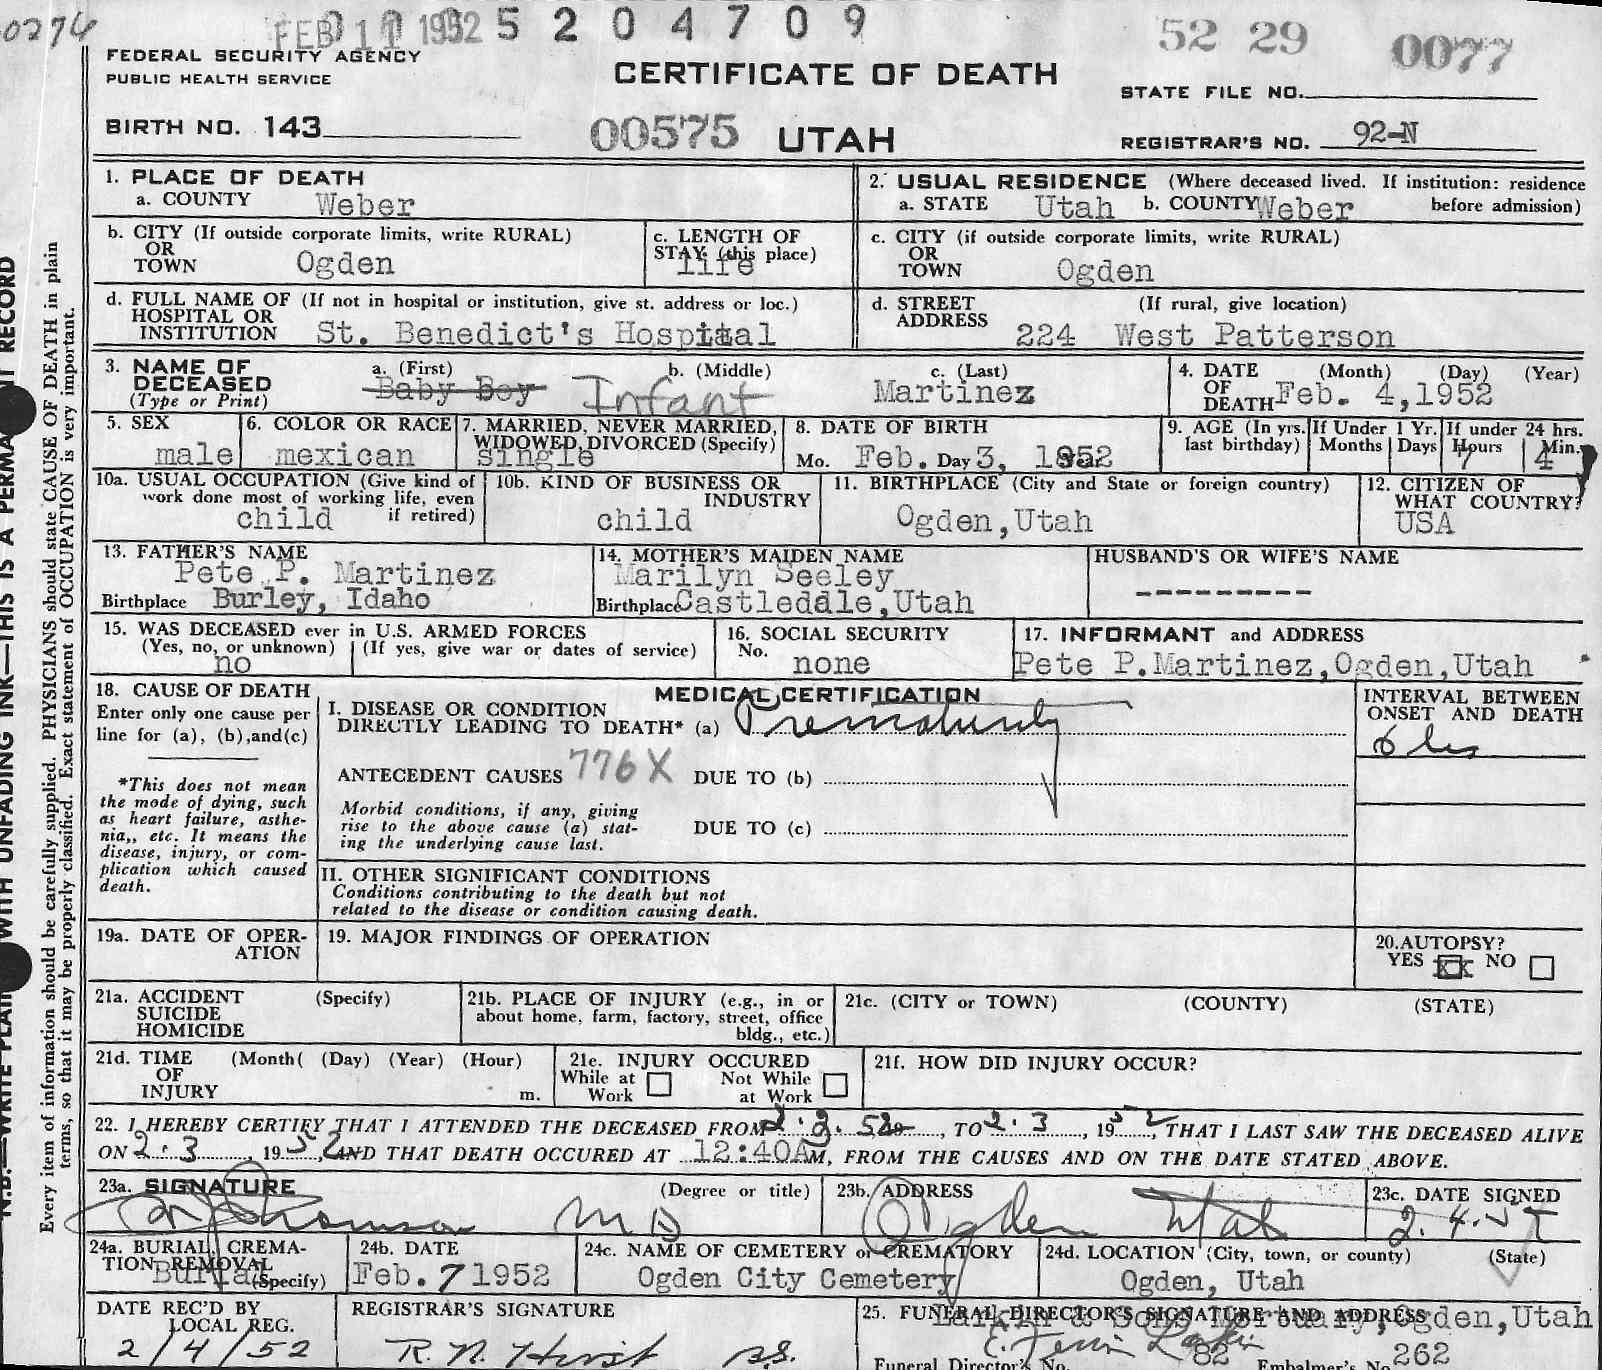 0274
FEB 11 1952 5 2 0 4 7 0 9
52 29 0077
FEDERAL SECURITY AGENCY
PUBLIC HEALTH SERVICE
CERTIFICATE OF DEATH
STATE FILE NO.
BIRTH NO. 143
00575 UTAH
REGISTRAR'S NO. 92-N
1. PLACE OF DEATH
a. COUNTY Weber
2. USUAL RESIDENCE (Where deceased lived. If institution: residence
a. STATE Utah b. COUNTY Weber before admission)
b. CITY (If outside corporate limits, write RURAL)
OR
TOWN Ogden
c. LENGTH OF
STAY (this place)
life
c. CITY (if outside corporate limits, write RURAL)
OR
TOWN Ogden
d. FULL NAME OF (If not in hospital or institution, give st. address or loc.)
HOSPITAL OR
INSTITUTION St. Benedict's Hospital
d. STREET (If rural, give location)
ADDRESS
224 West Patterson
3. NAME OF a. (First) b. (Middle) c. (Last)
DECEASED Baby Boy Infant Martinez
(Type or Print)
4. DATE (Month) (Day) (Year)
OF
DEATH Feb. 4,1952
5. SEX
male
6. COLOR OR RACE
mexican
7. MARRIED, NEVER MARRIED,
WIDOWED, DIVORCED (Specify)
single
8. DATE OF BIRTH
Mo. Feb. Day 3, Year 1952
9. AGE (In yrs.
last birthday)
If Under 1 Yr.
Months Days
If under 24 hrs.
Hours Min.
7 4
10a. USUAL OCCUPATION (Give kind of
work done most of working life, even
child if retired)
10b. KIND OF BUSINESS OR
INDUSTRY
child
11. BIRTHPLACE (City and State or foreign country)
Ogden,Utah
12. CITIZEN OF
WHAT COUNTRY?
USA
13. FATHER'S NAME
Pete P. Martinez
Birthplace Burley, Idaho
14. MOTHER'S MAIDEN NAME
Marilyn Seeley
Birthplace Castleddle,Utah
HUSBAND'S OR WIFE'S NAME
---------
15. WAS DECEASED ever in U.S. ARMED FORCES
(Yes, no, or unknown) (If yes, give war or dates of service)
no
16. SOCIAL SECURITY
No.
none
17. INFORMANT and ADDRESS
Pete P.Martinez,Ogden,Utah
18. CAUSE OF DEATH
Enter only one cause per
line for (a), (b),and(c)
*This does not mean
the mode of dying, such
as heart failure, asthe-
nia,, etc. It means the
disease, injury, or com-
plication which caused
death.
MEDICAL CERTIFICATION
I. DISEASE OR CONDITION
DIRECTLY LEADING TO DEATH* (a) Prematurity
ANTECEDENT CAUSES 776X DUE TO (b)
Morbid conditions, if any, giving
rise to the above cause (a) stat-
ing the underlying cause last.
DUE TO (c)
II. OTHER SIGNIFICANT CONDITIONS
Conditions contributing to the death but not
related to the disease or condition causing death.
INTERVAL BETWEEN
ONSET AND DEATH
6 hrs
19a. DATE OF OPER-
ATION
19. MAJOR FINDINGS OF OPERATION
20. AUTOPSY?
YES XX NO
21a. ACCIDENT (Specify)
SUICIDE
HOMICIDE
21b. PLACE OF INJURY (e.g., in or
about home, farm, factory, street, office
bldg., etc.)
21c. (CITY or TOWN) (COUNTY) (STATE)
21d. TIME (Month( (Day) (Year) (Hour)
OF
INJURY m.
21e. INJURY OCCURED
While at Not While
Work at Work
21f. HOW DID INJURY OCCUR?
22. I HEREBY CERTIFY THAT I ATTENDED THE DECEASED FROM 2.2.52, TO 2.3, 1952, THAT I LAST SAW THE DECEASED ALIVE
ON 2.3, 1952, AND THAT DEATH OCCURED AT 12:40AM, FROM THE CAUSES AND ON THE DATE STATED ABOVE.
23a. SIGNATURE (Degree or title)
Thomson MD
23b. ADDRESS
Ogden Utah
23c. DATE SIGNED
2.4.5
24a. BURIAL, CREMA-
TION REMOVAL
Burial (Specify)
24b. DATE
Feb. 7 1952
24c. NAME OF CEMETERY or CREMATORY
Ogden City Cemetery
24d. LOCATION (City, town, or county) (State)
Ogden, Utah
DATE REC'D BY
LOCAL REG.
2/4/52
REGISTRAR'S SIGNATURE
R. N. Hirst
25. FUNERAL DIRECTOR'S SIGNATURE AND ADDRESS
Larkin & Sons Mortuary,Ogden,Utah
Funeral Director's No. 82 Embalmer's No. 262
N.B.—WRITE PLAINLY WITH UNFADING INK—THIS IS A PERMANENT RECORD
Every item of information should be carefully supplied. PHYSICIANS should state CAUSE OF DEATH in plain
terms, so that it may be properly classified. Exact statement of OCCUPATION is very important.